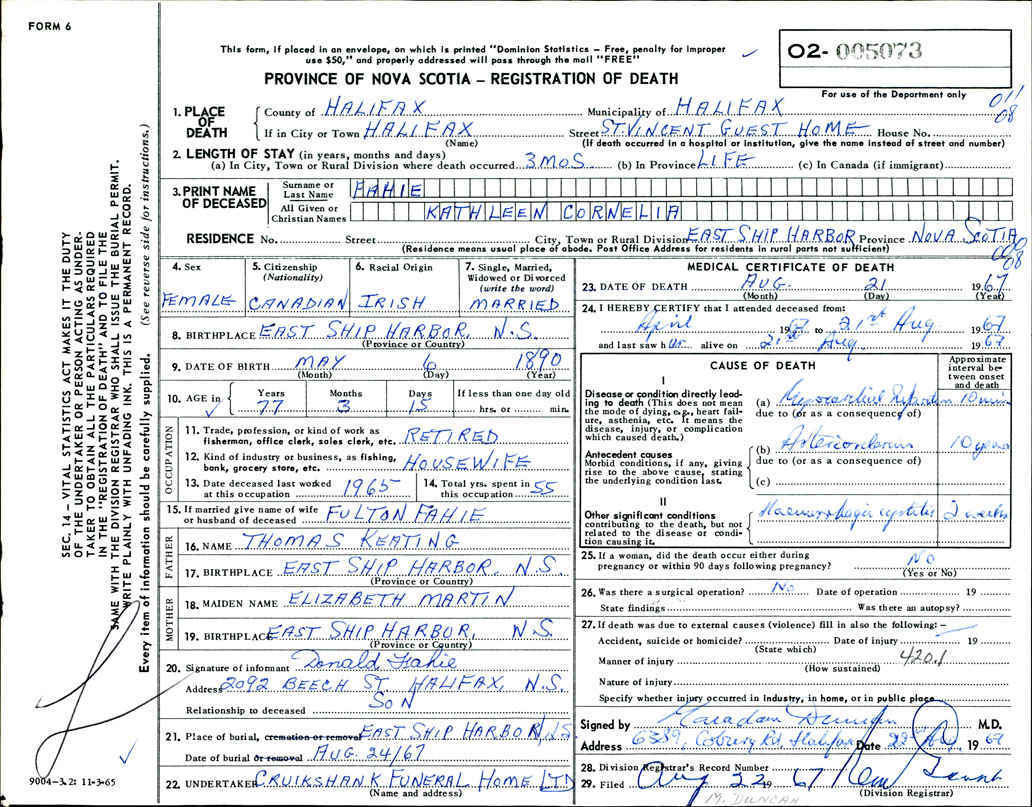 FORM 6
This form, if placed in an envelope, on which is printed "Dominion Statistics – Free, penalty for improper
use $50," and properly addressed will pass through the mail "FREE"
O2- 005073
PROVINCE OF NOVA SCOTIA – REGISTRATION OF DEATH
For use of the Department only
011
08
1. PLACE OF DEATH
County of HALIFAX Municipality of HALIFAX
If in City or Town HALIFAX Street ST. VINCENT GUEST HOME House No.
(Name) (If death occurred in a hospital or institution, give the name instead of street and number)
2. LENGTH OF STAY (in years, months and days)
(a) In City, Town or Rural Division where death occurred. 3 MOS (b) In Province LIFE (c) In Canada (if immigrant)
3. PRINT NAME OF DECEASED
Surname or Last Name FAHIE
All Given or Christian Names KATHLEEN CORNELIA
RESIDENCE No. Street City, Town or Rural Division EAST SHIP HARBOR Province NOVA SCOTIA
(Residence means usual place of abode. Post Office Address for residents in rural parts not sufficient)
08
4. Sex FEMALE
5. Citizenship (Nationality) CANADIAN
6. Racial Origin IRISH
7. Single, Married, Widowed or Divorced (write the word) MARRIED
8. BIRTHPLACE EAST SHIP HARBOR, N.S.
(Province or Country)
9. DATE OF BIRTH MAY 6 1890
(Month) (Day) (Year)
10. AGE in Years 77 Months 3 Days 15 If less than one day old hrs. or min.
OCCUPATION
11. Trade, profession or kind of work as fisherman, office clerk, sales clerk, etc. RETIRED
12. Kind of industry or business, as fishing, bank, grocery store, etc. HOUSEWIFE
13. Date deceased last worked at this occupation 1965
14. Total yrs. spent in this occupation 55
15. If married give name of wife or husband of deceased FULTON FAHIE
FATHER
16. NAME THOMAS KEATING
17. BIRTHPLACE EAST SHIP HARBOR, N.S.
(Province or Country)
MOTHER
18. MAIDEN NAME ELIZABETH MARTIN
19. BIRTHPLACE EAST SHIP HARBOR, N.S.
(Province or Country)
20. Signature of informant Donald Fahie
Address 2092 BEECH ST. HALIFAX, N.S.
Relationship to deceased SON
21. Place of burial, cremation or removal EAST SHIP HARBOR, N.S.
Date of burial or removal AUG. 24/67
22. UNDERTAKER CRUIKSHANK FUNERAL HOME LTD
(Name and address)
MEDICAL CERTIFICATE OF DEATH
23. DATE OF DEATH AUG. 21 1967
(Month) (Day) (Year)
24. I HEREBY CERTIFY that I attended deceased from:
April 1967 to 21st Aug. 1967
and last saw her alive on 21st Aug 1967
CAUSE OF DEATH
Approximate interval between onset and death
I
Disease or condition directly leading to death (This does not mean the mode of dying, e.g., heart failure, asthenia, etc. It means the disease, injury, or complication which caused death.)
(a) Myocardial 10 min
due to (or as a consequence of)
Antecedent causes
Morbid conditions, if any, giving rise to the above cause, stating the underlying condition last.
(b) 10 years
due to (or as a consequence of)
(c)
II
Other significant conditions contributing to the death, but not related to the disease or condition causing it.
Haemorrhagic cystitis 2 weeks
25. If a woman, did the death occur either during pregnancy or within 90 days following pregnancy? No
(Yes or No)
26. Was there a surgical operation? No Date of operation 19
State findings Was there an autopsy?
27. If death was due to external causes (violence) fill in also the following: –
Accident, suicide or homicide? Date of injury 19
(State which)
420.1
Manner of injury
(How sustained)
Nature of injury
Specify whether injury occurred in Industry, in home, or in public place
Signed by Duncan M.D.
Address 6389, Coburg Rd, Halifax Date 22nd Aug 1967
28. Division Registrar's Record Number
29. Filed Aug 22 1967
(Division Registrar)
M. DUNCAN
SEC. 14 – VITAL STATISTICS ACT MAKES IT THE DUTY
OF THE UNDERTAKER OR PERSON ACTING AS UNDER-
TAKER TO OBTAIN ALL THE PARTICULARS REQUIRED
IN THE "REGISTRATION OF DEATH" AND TO FILE THE
SAME WITH THE DIVISION REGISTRAR WHO SHALL ISSUE THE BURIAL PERMIT.
WRITE PLAINLY WITH UNFADING INK. THIS IS A PERMANENT RECORD.
Every item of information should be carefully supplied. (See reverse side for instructions.)
9004-3.2: 11-3-65